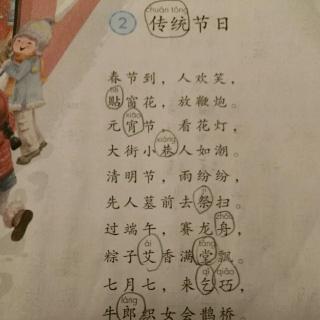 chuán tǒng
2 传统节日
春节到，人欢笑，
tiē
贴窗花，放鞭炮。
xiāo
元宵节，看花灯，
xiàng
大街小巷人如潮。
清明节，雨纷纷，
jì
先人墓前去祭扫。
zhōu
过端午，赛龙舟，
ài táng
粽子艾香满堂飘。
qǐ qiǎo
七月七，来乞巧，
láng
牛郎织女会鹊桥。